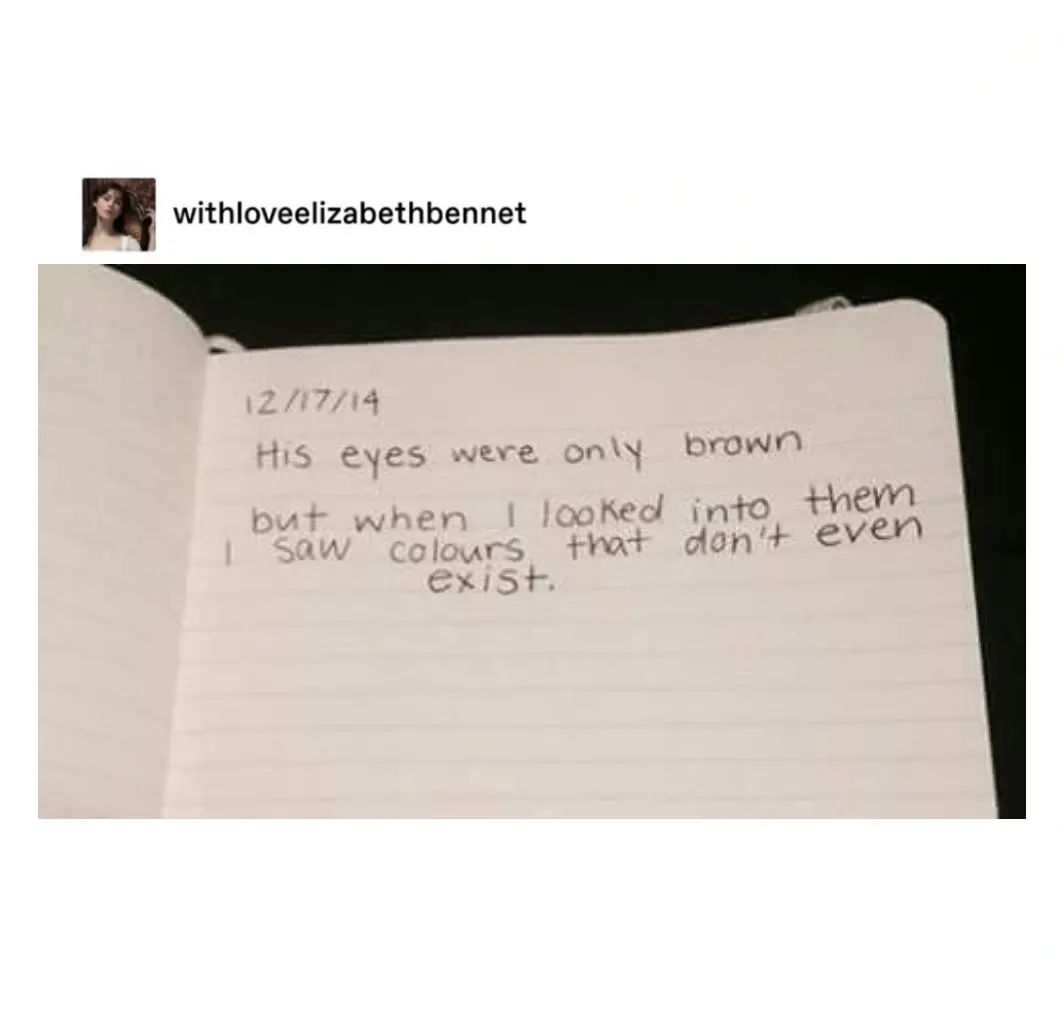 withloveelizabethbennet
12/17/14
His eyes were only brown
but when I looked into them
I saw colours that don't even
exist.